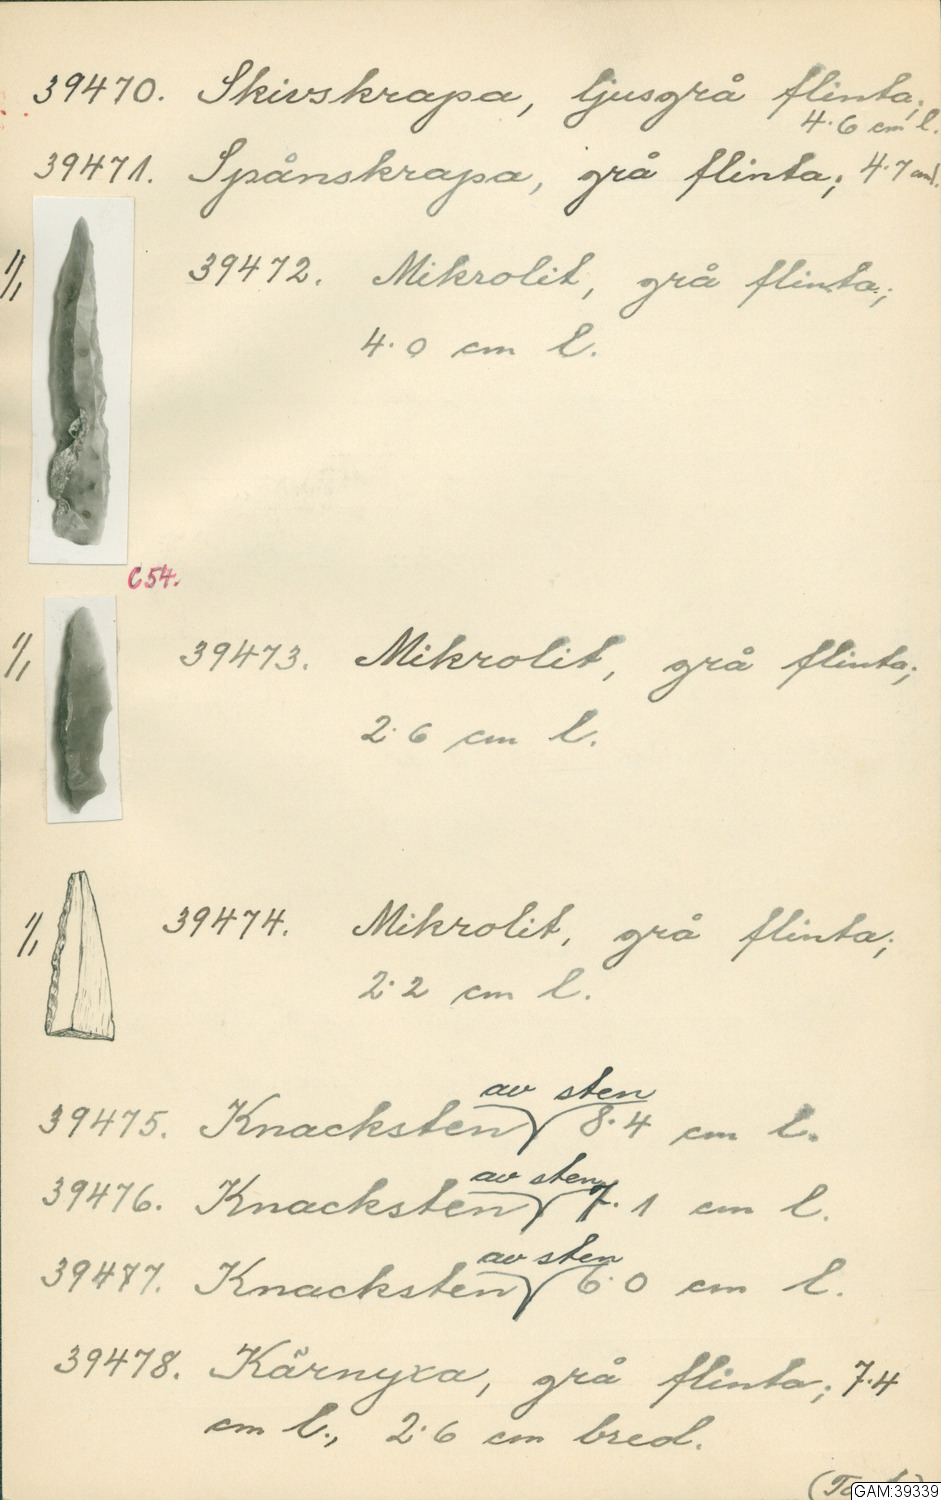 39470. Skivskrapa, ljusgrå flinta;
4.6 cm l.
39471. Spånskrapa, grå flinta; 4.7 cm l.
1/1 39472. Mikrolit, grå flinta;
4.0 cm l.
C 54.
1/1 39473. Mikrolit, grå flinta;
2.6 cm l.
1/1 39474. Mikrolit, grå flinta;
2.2 cm l.
av sten
39475. Knacksten 8.4 cm l.
av sten
39476. Knacksten 7.1 cm l.
av sten
39477. Knacksten 6.0 cm l.
39478. Kärnyxa, grå flinta; 7.4
cm l., 2.6 cm bred.
GAM:39339